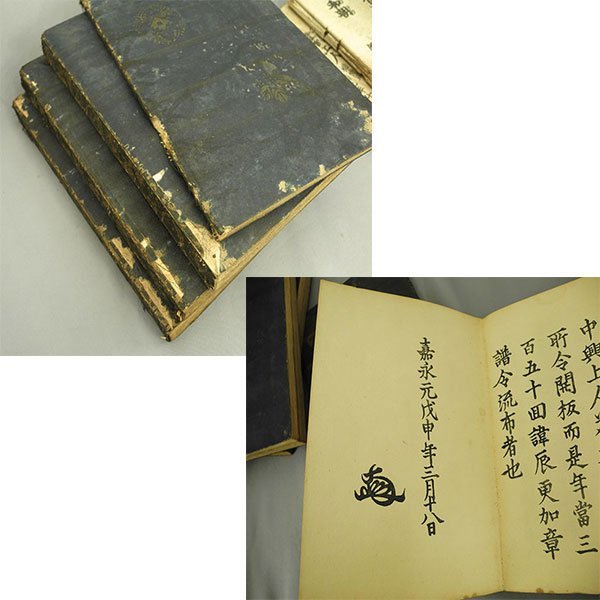 中興上人
所令開板而是年當三
百五十回諱辰更加章
譜令流布者也
嘉永元戊申年三月十八日